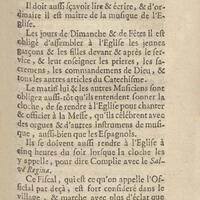 Il doit aussi sçavoir lire & écrire, & d'or-
dinaire il est maître de la musique de l'E-
glise.
Les jours de Dimanche & de Fêtes il est
obligé d'assembler à l'Eglise les jeunes
garçons & les filles devant & après le ser-
vice, & leur enseigner les prieres, les sa-
cremens, les commandemens de Dieu, &
tous les autres articles du Catechisme.
Le matin lui & les autres Musiciens sont
obligez aussi-tôt qu'ils entendent sonner la
cloche, de se rendre à l'Eglise pour chanter
& officier à la Messe, qu'ils célebrent avec
des orgues & d'autres instrumens de musi-
que, aussi-bien que les Espagnols.
Ils se doivent aussi rendre à l'Eglise à
cinq heures du soir lorsque la cloche les
y appelle, pour dire Complie avec le Sal-
ve Regina.
Ce Fiscal, qui est ce qu'on appelle l'Of-
ficial par deçà, est fort consideré dans le
village, & marche avec plus d'éclat que